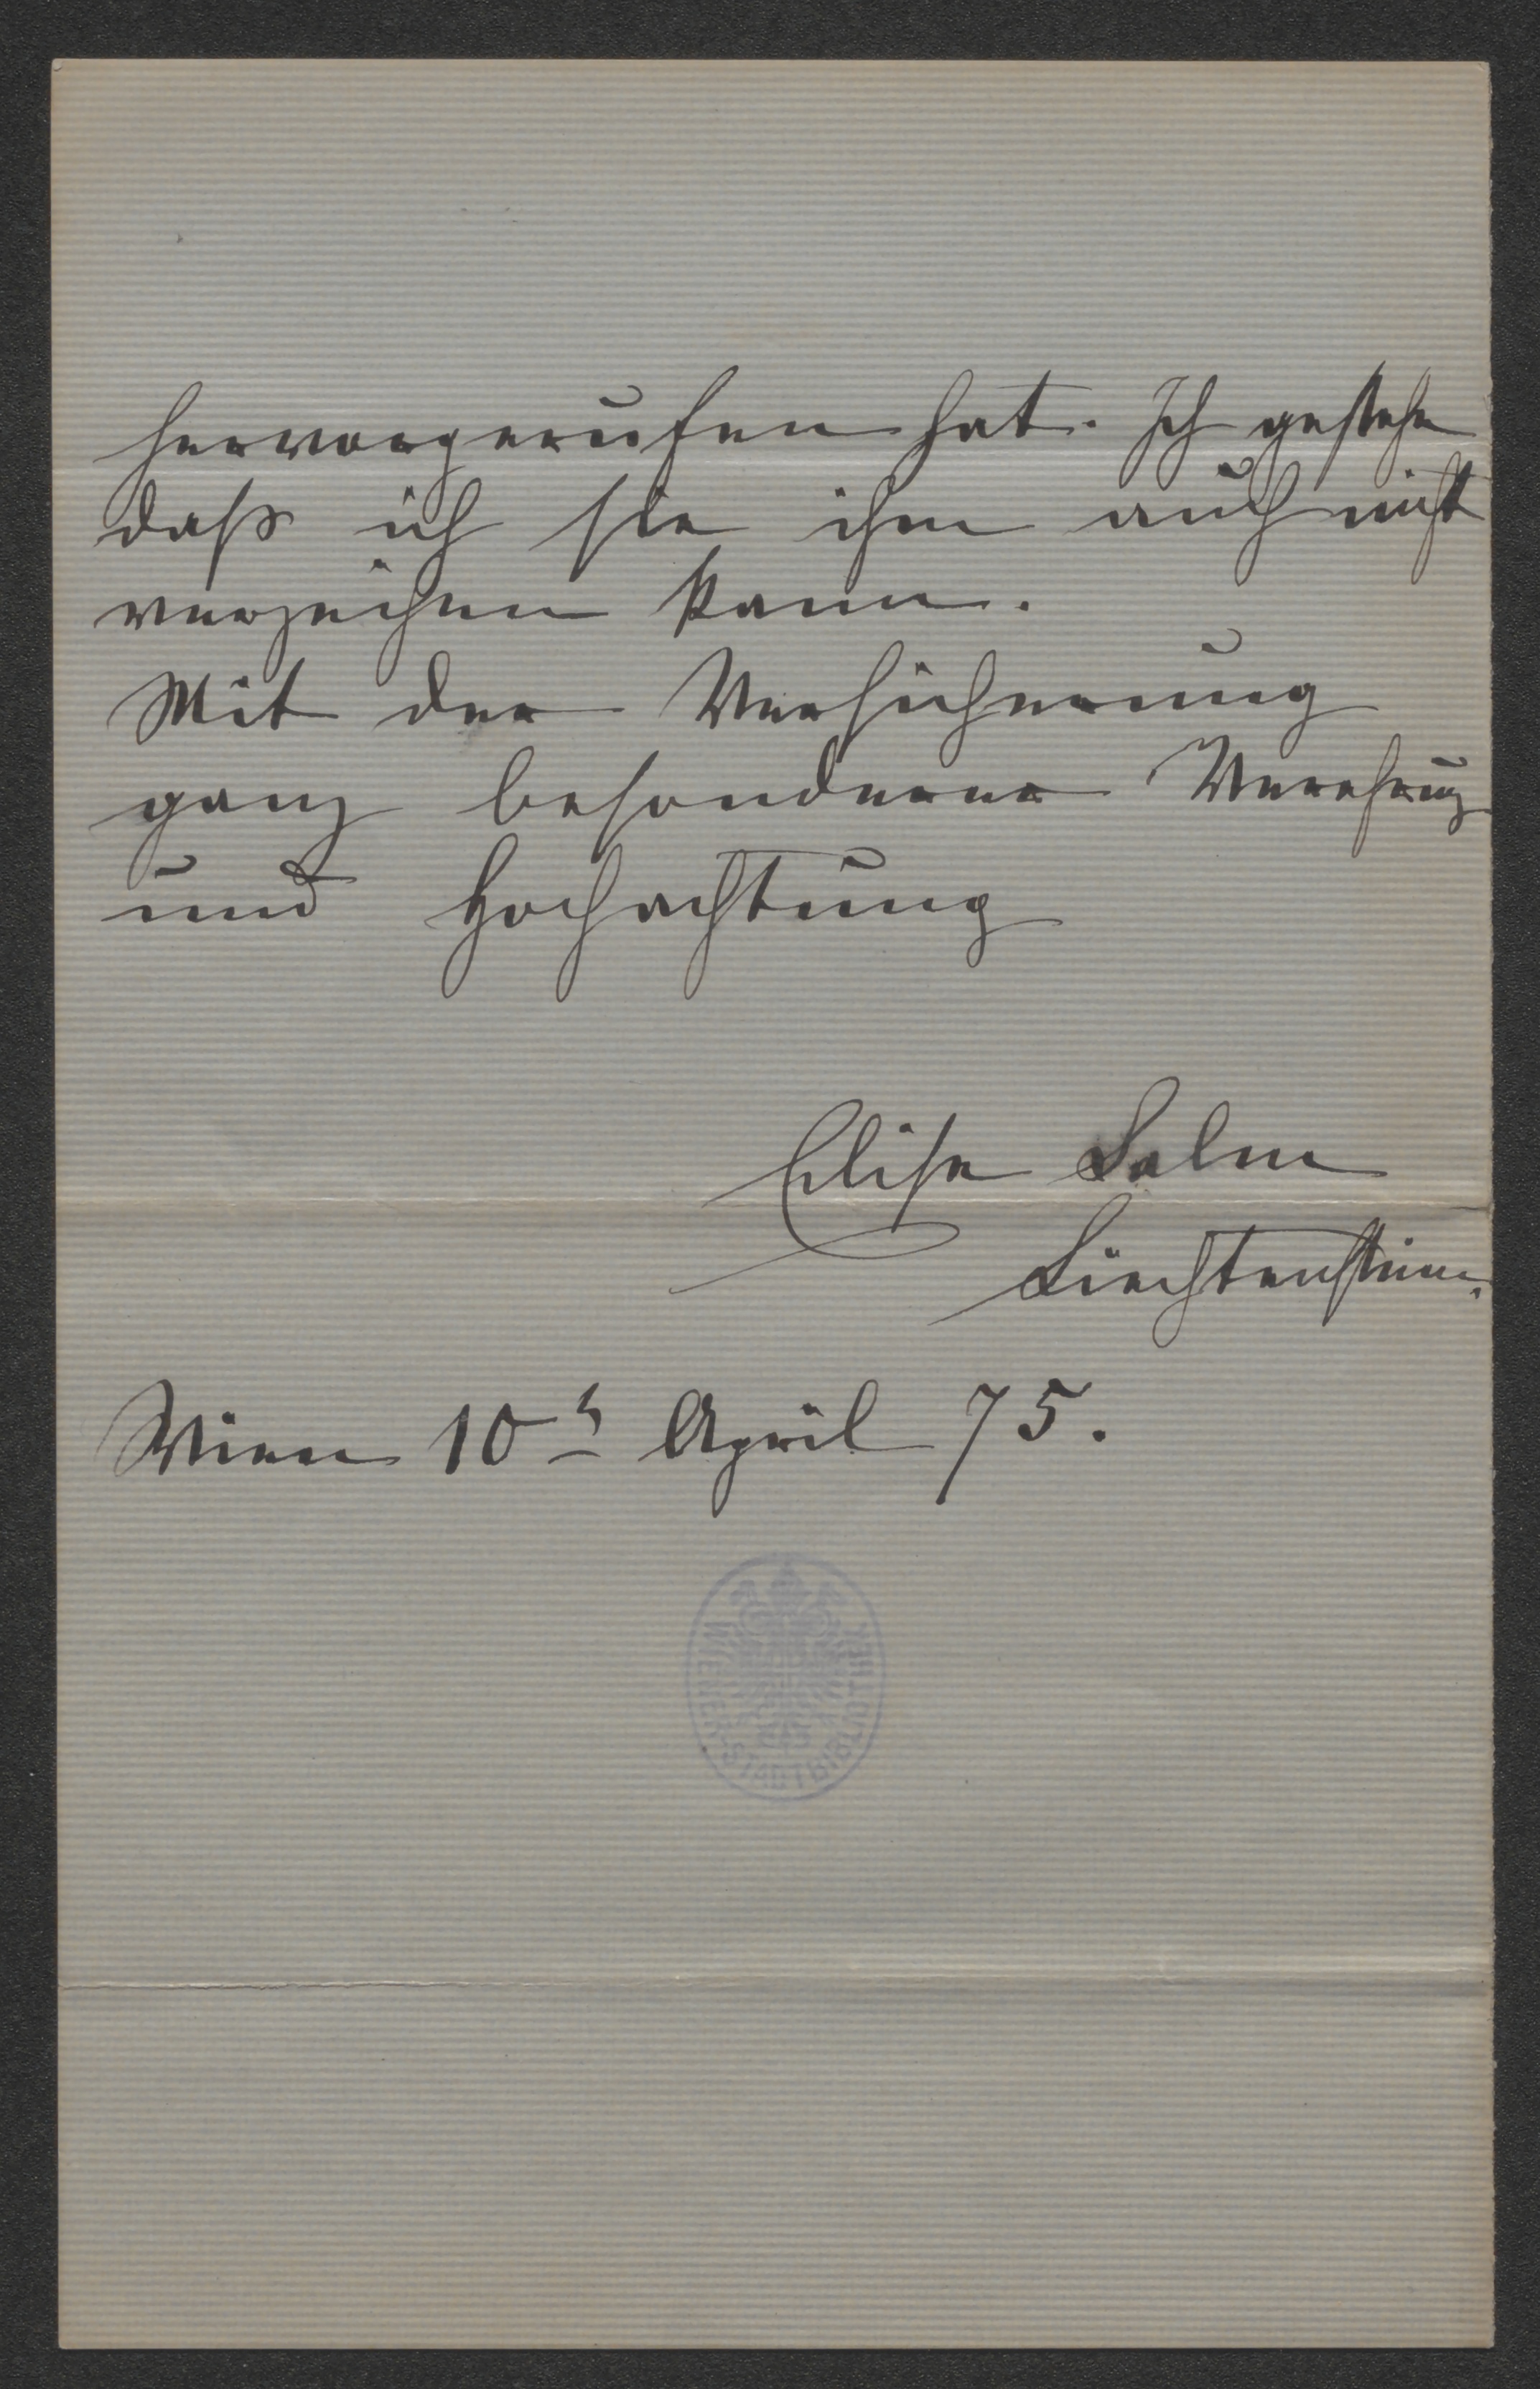 hervorgerufen hat. Ich gestehe
daß ich sie ihm auch nicht
verzeihen kann.
Mit der Versicherung
ganz besonderer Verehrung
und Hochachtung
Elise Salm
Liechtenstein.
Wien 10t April 75.
WIENER STADTBIBLIOTHEK